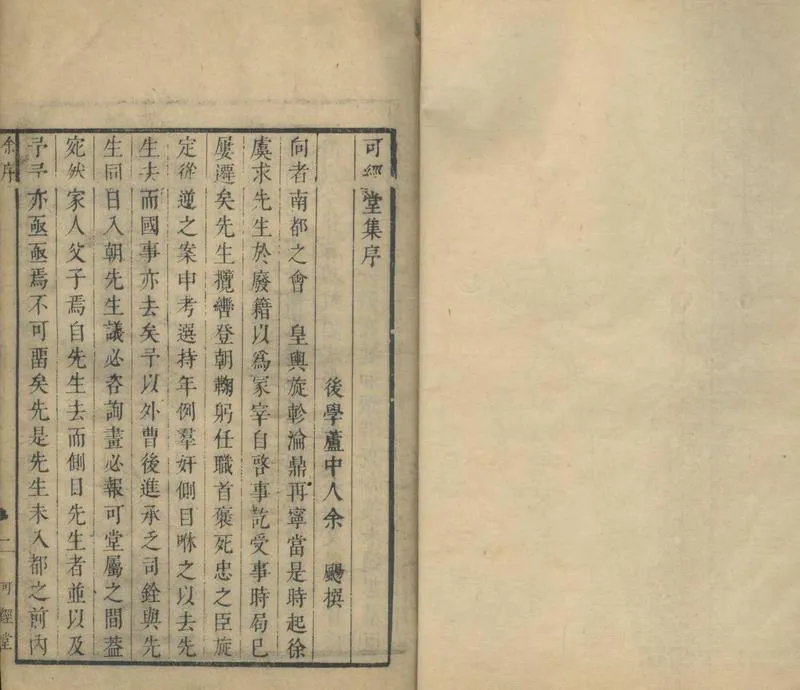 可經堂集序
後學蘆中人余　颺撰
向者南都之會　皇輿旋軫淪鼎再寧當是時起徐
虞求先生於廢籍以爲冢宰自啓事訖受事時局已
屢遷矣先生攬轡登朝鞠躬任職首褒死忠之臣旋
定從逆之案申考選持年例羣奸側目咻之以去先
生去而國事亦去矣予以外曹後進承乏司銓與先
生同日入朝先生議必咨詢畫必報可堂屬之間蓋
宛然家人父子焉自先生去而側目先生者並以及
予予亦亟亟焉不可留矣先是先生未入都之前內
余序
一
可經堂